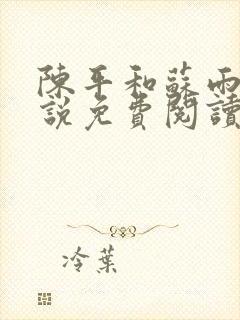 陳平和蘇雨
說免費閱讀
冷葉